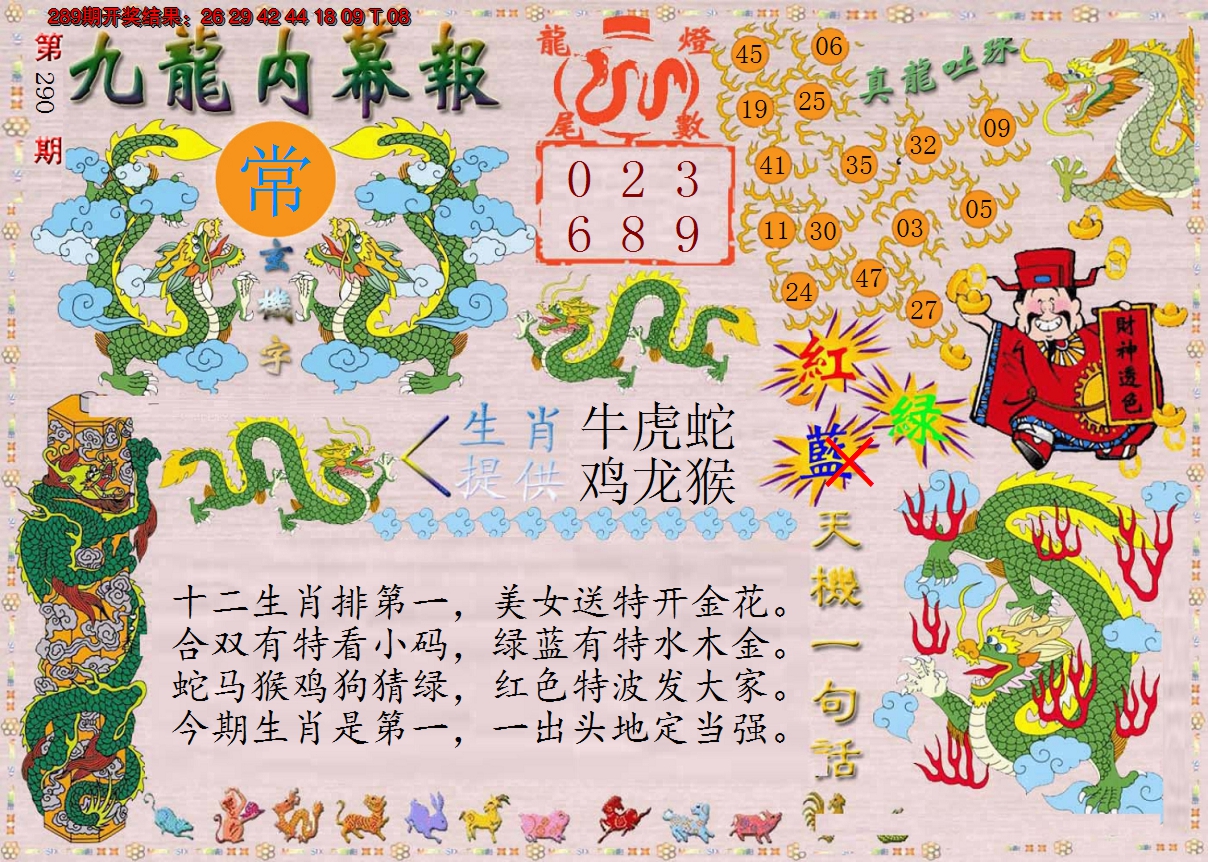 289期开奖结果：26 29 42 44 18 09 T 08
第290期
九龍内幕報
常
玄機字
龍燈
尾數
0 2 3
6 8 9
真龍吐珠
45 06
19 25
41 35 32 09
11 30 03 05
24 47 27
財神透色
紅
绿
藍
生肖 牛虎蛇
提供 鸡龙猴
天機一句話
十二生肖排第一，美女送特开金花。
合双有特看小码，绿蓝有特水木金。
蛇马猴鸡狗猜绿，红色特波发大家。
今期生肖是第一，一出头地定当强。